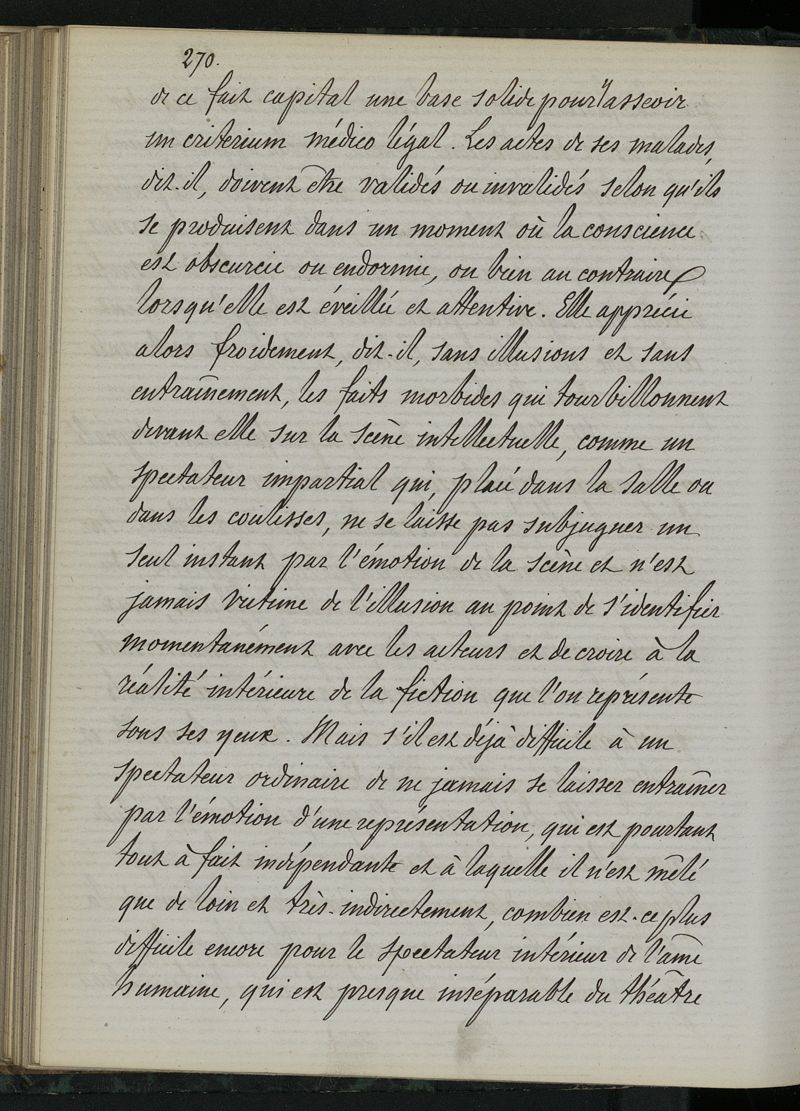 270.
de ce fait capital une base solide pour y asseoir
un criterium médico légal. Les actes de ses malades,
dit-il, doivent être validés ou invalidés selon qu'ils
se produisent dans un moment où la conscience
est obscurcie ou endormie, ou bien au contraire
lorsqu'elle est éveillée et attentive. Elle apprécie
alors froidement, dit-il, sans illusions et sans
entraînement, les faits morbides qui tourbillonnent
devant elle sur la scène intellectuelle, comme un
spectateur impartial qui, placé dans la salle ou
dans les coulisses, ne se laisse pas subjuguer un
seul instant par l'émotion de la scène et n'est
jamais victime de l'illusion au point de s'identifier
momentanément avec les acteurs et de croire à la
réalité intérieure de la fiction que l'on représente
sous ses yeux. Mais s'il est déjà difficile à un
spectateur ordinaire de ne jamais se laisser entraîner
par l'émotion d'une représentation, qui est pourtant
tout à fait indépendante et à laquelle il n'est mêlé
que de loin et très-indirectement, combien est-ce plus
difficile encore pour le spectateur intérieur de l'âme
humaine, qui est presque inséparable du théâtre